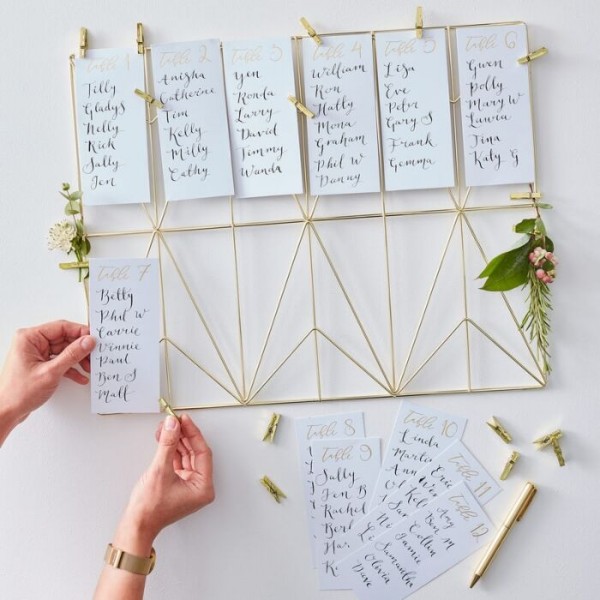 table 1
Tilly
Gladys
Nelly
Rick
Sally
Jen
table 2
Anisha
Catherine
Tim
Kelly
Milly
Cathy
table 3
Yen
Ronda
Larry
David
Timmy
Wanda
table 4
William
Ron
Hatty
Mona
Graham
Phil W
Danny
table 5
Lisa
Eve
Peter
Gary S
Frank
Gemma
table 6
Gwen
Polly
Mary W
Lauria
Tina
Katy G
table 7
Betty
Phil W
Carrie
Vinnie
Paul
Ben S
Matt
table 8
table 9
Sally
Jen B
Rachel
table 10
Linda
table 11
Eric
Amy
table 12
Ben M
Collen
Jamie
Samantha
Olivia
Dave